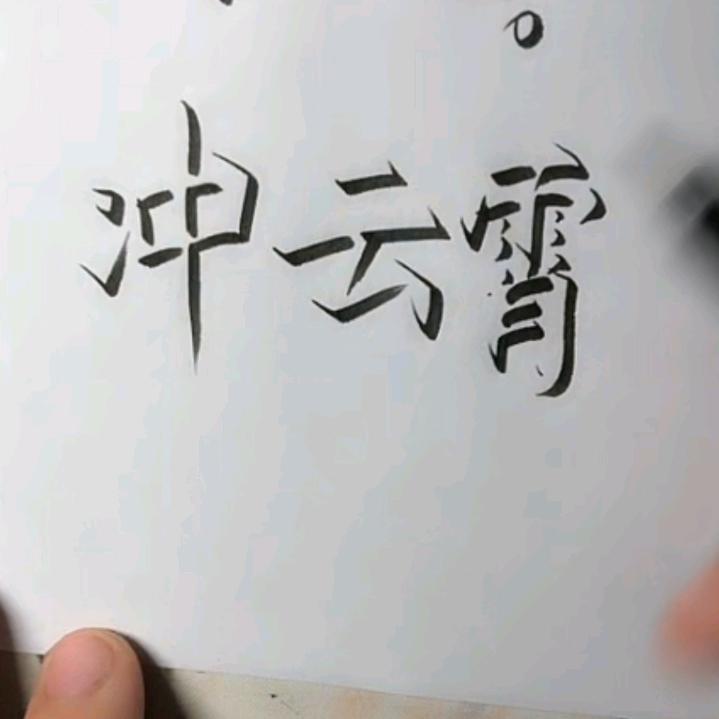 。
冲云霄